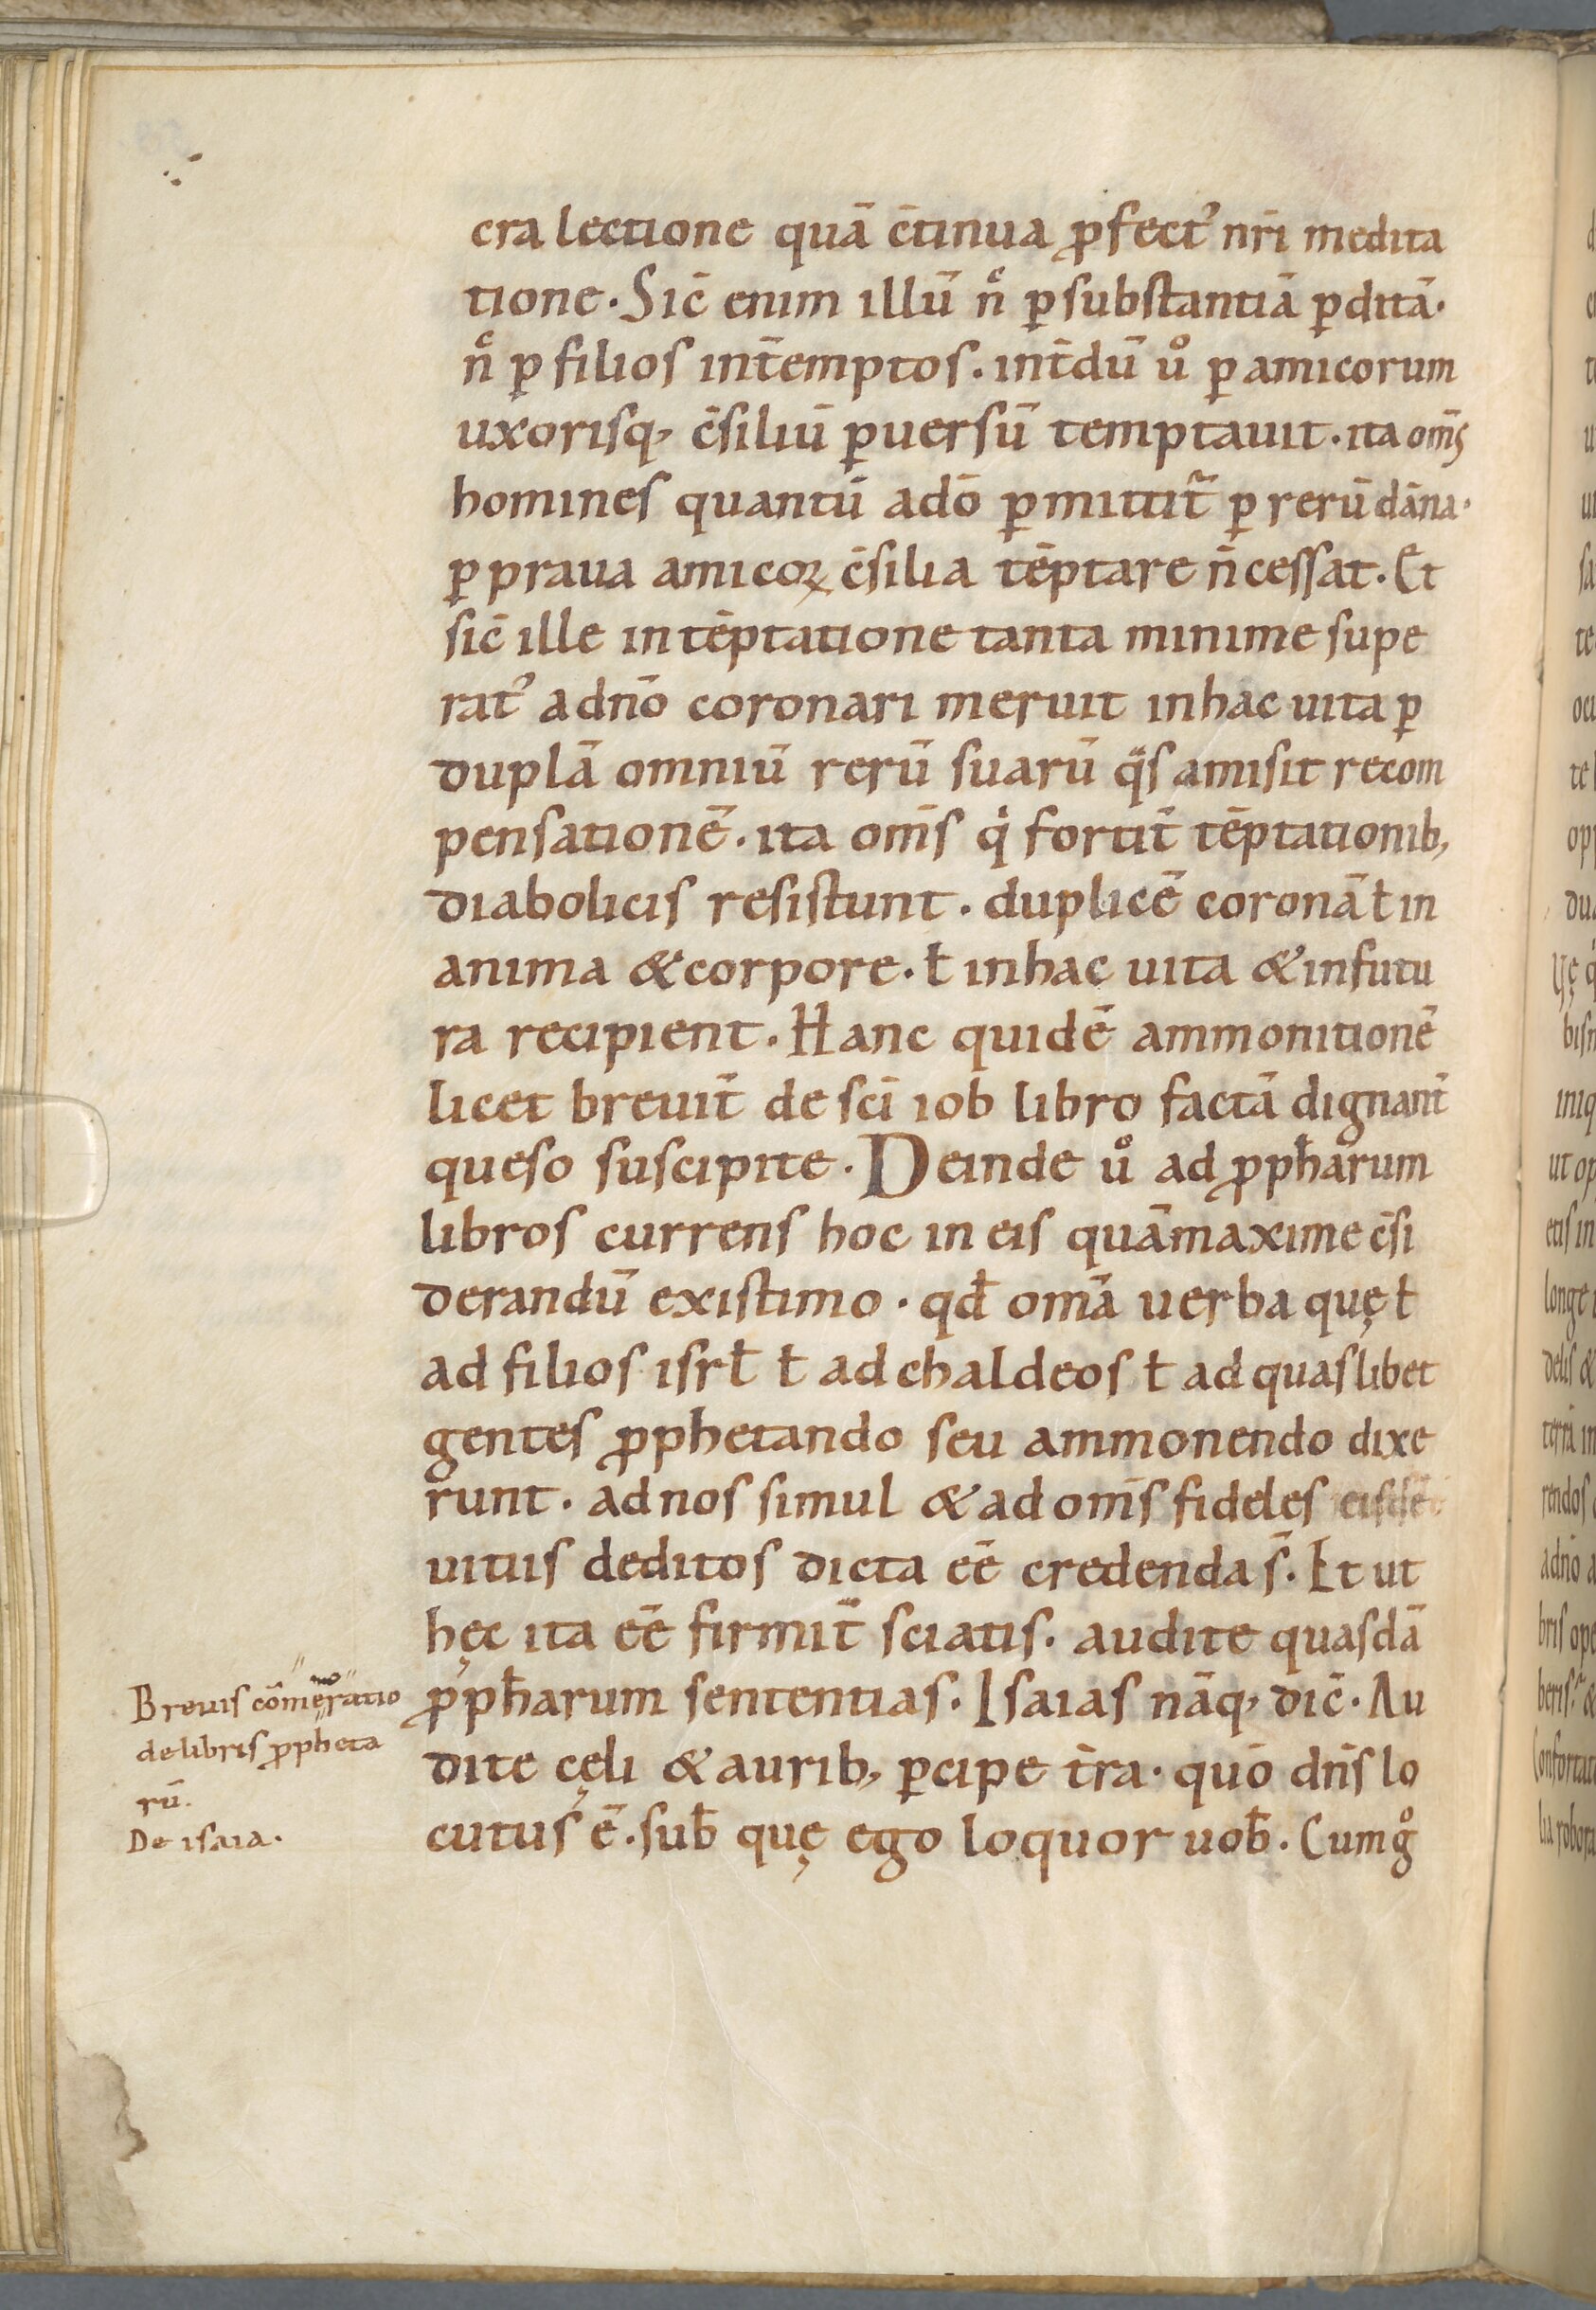 cra lectione quā c̄tinua ꝓfect᾽ nr̄i medita
tione. Sic̄ enim illū nͨ ꝑ substantiā ꝑditā.
nͨ ꝑ filios int̄emptos. int̄dū uͦ ꝑ amicorum
uxorisq, c̄siliū ꝑuersū temptauit. ita om̄s
homines quantū ad̄o ꝑmittit̃ ꝑ rerū dāna.
ꝑ praua amicoꝝ c̄silia tēptare n̄ cessat. Et
sic̄ ille in tēptatione tanta minime supe
rat᾽ a dn̄o coronari meruit in hac uita ꝑ
duplā omniū rerū suarū qͣs amisit recom
pensationē. ita om̄s qͥ fortit̄ tēptationib,
diabolicis resistunt. duplicē coronā ł in
anima & corpore. ł in hac uita & in futu
ra recipient. Hanc quidē ammonitionē
licet breuit̄ de sc̄i iob libro factā dignant̄
queso suscipite. Deinde uͦ ad ꝓph̄arum
libros currens hoc in eis quāmaxime c̄si
derandū existimo. qđ om̄a uerba quę ł
ad filios isrł ł ad chaldeos ł ad quaslibet
gentes ꝓphetando seu ammonendo dixe
runt. ad nos simul & ad om̄s fideles eisdē
uitiis deditos dicta eē credenda s̄. Et ut
hęc ita eē firmit̄ sciatis. audite quasdā
ꝓph̄arum sententias. Isaias nāq, dic̄. Au
dite cęli & aurib, ꝑcipe t̄ra. quō dn̄s lo
cutus ē. sub̄ quę ego loquor uob̄. Cum gͦ
Breuis cōmemoratio
de libris ꝓpheta
rū.
De isaia.